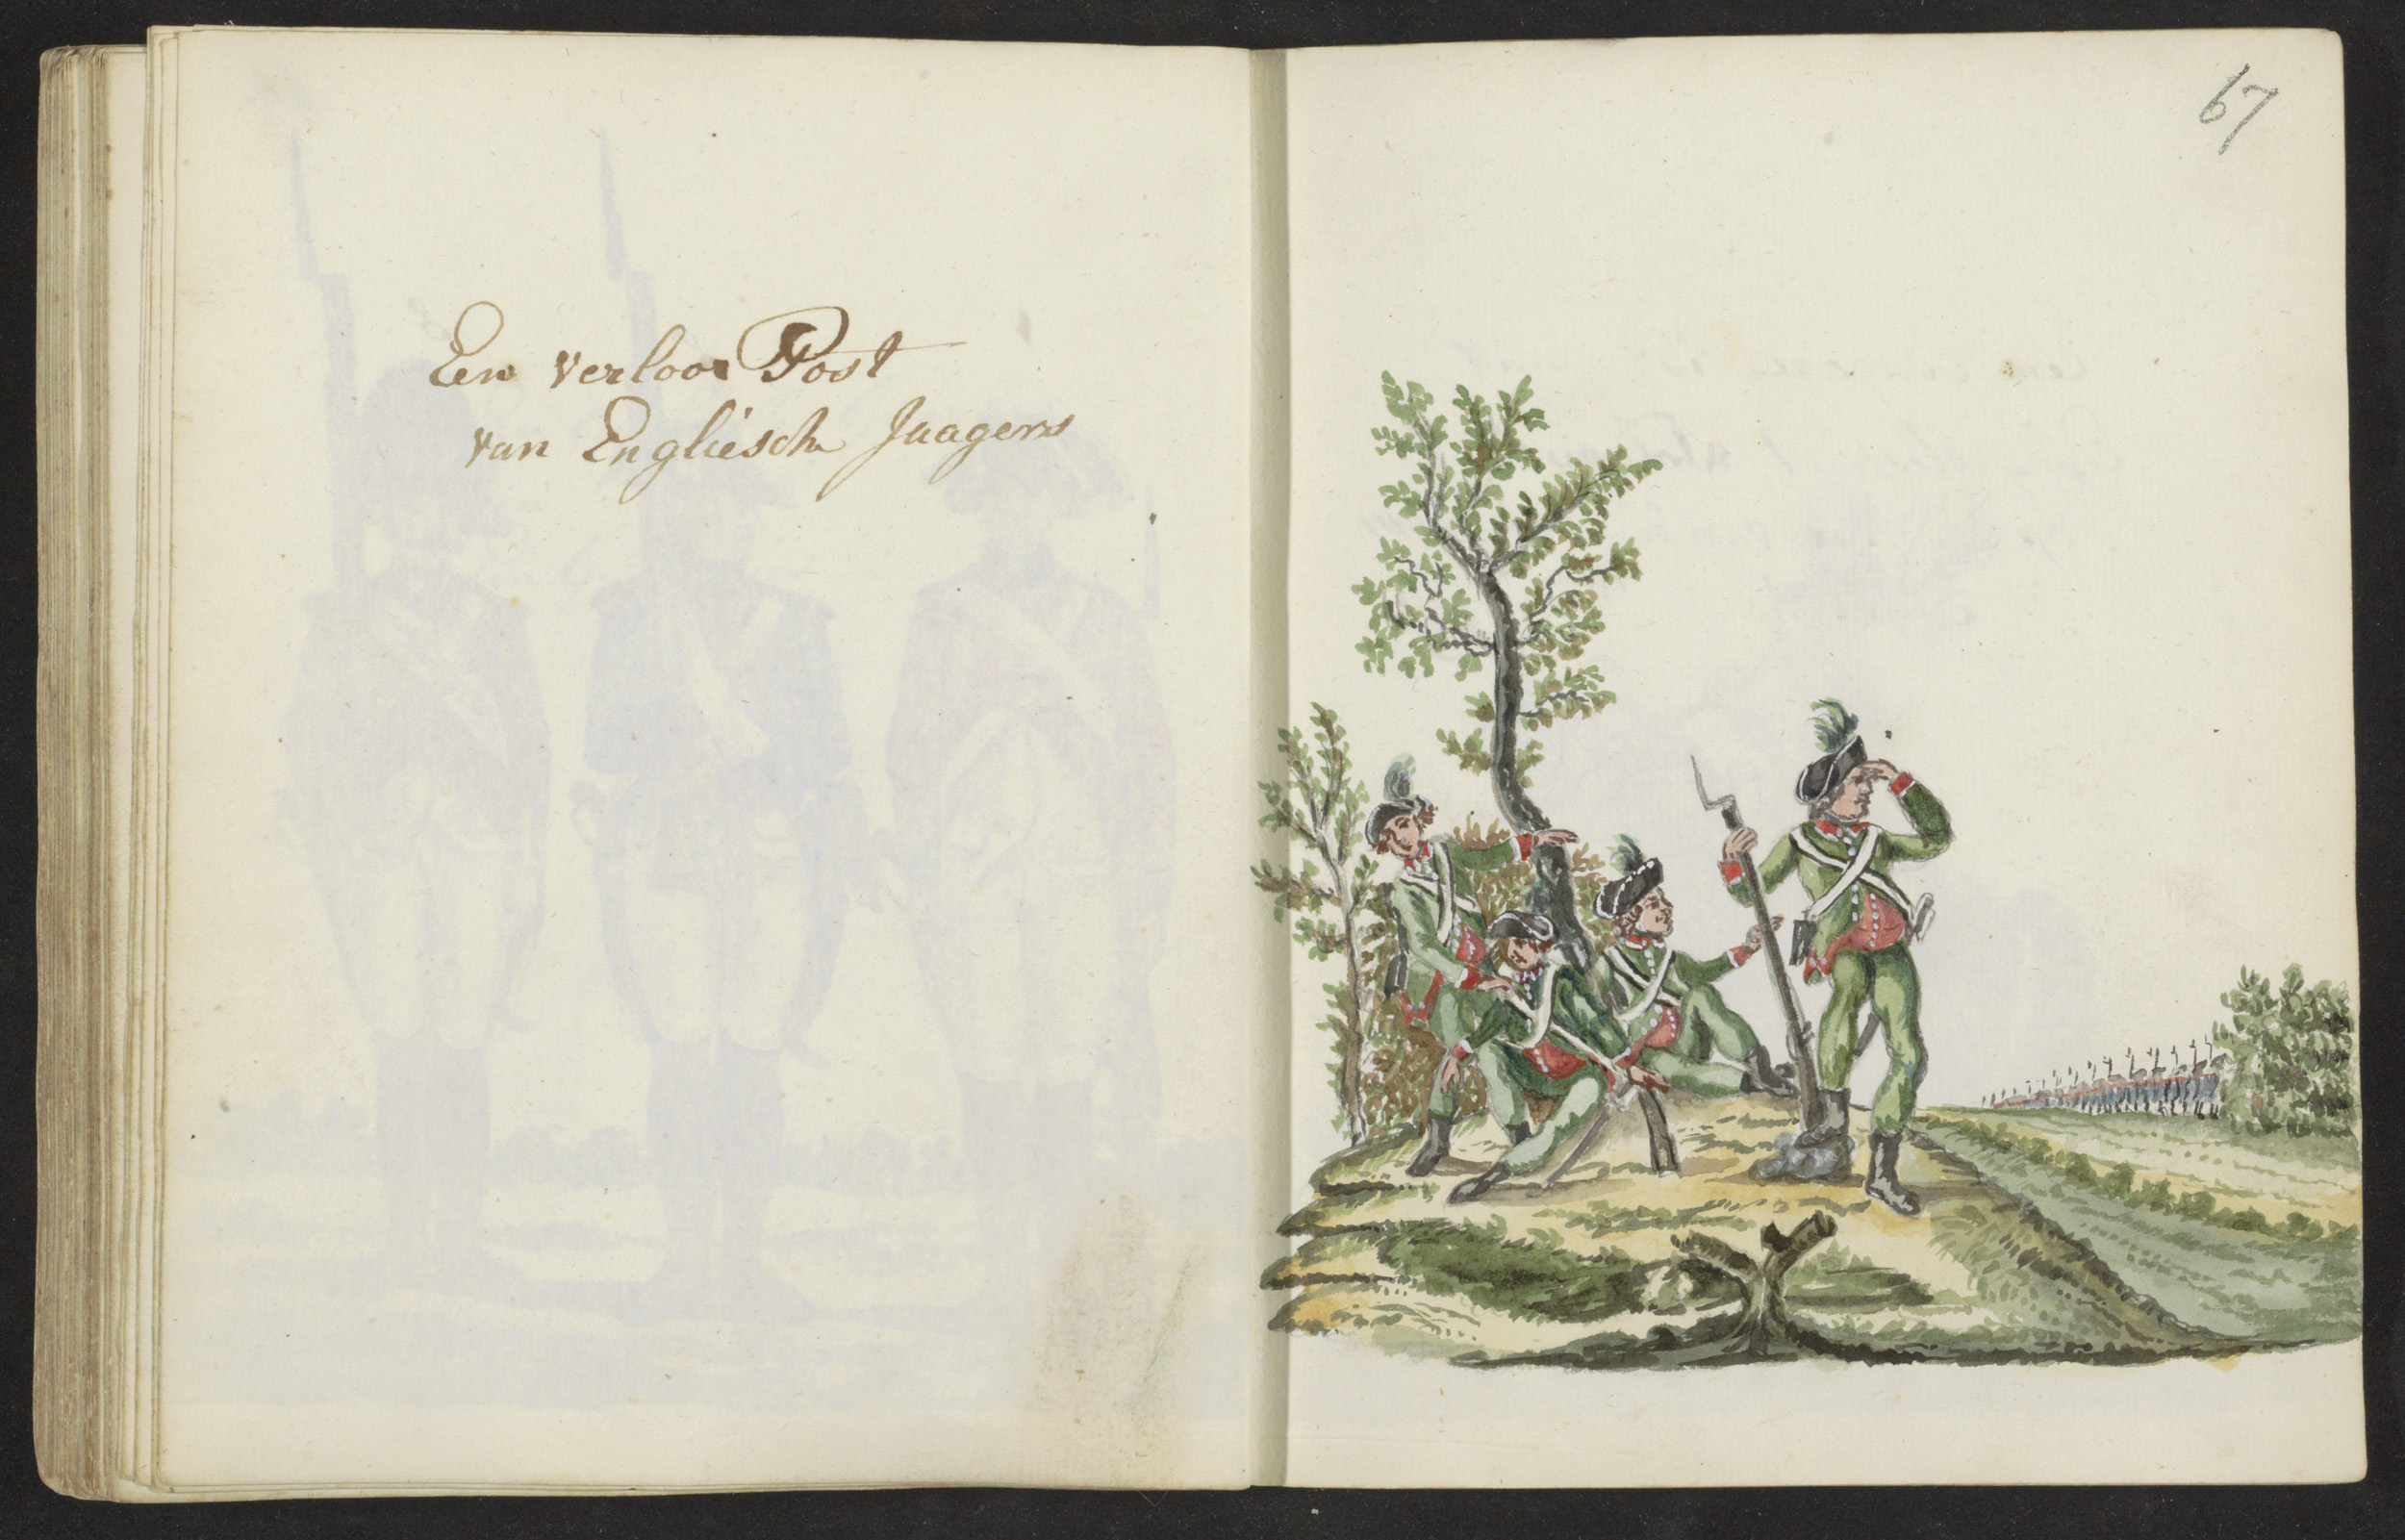 Een verloor Post
van Engliesch Jaagers
67